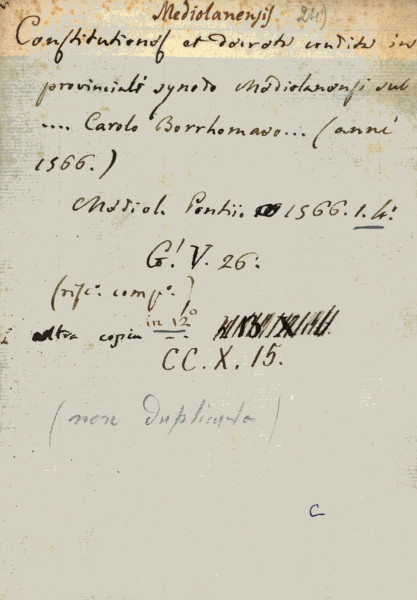 Mediolanensis. 24)
Constitutiones et decreta condita in
provinciali synodo Mediolanensi sub
.... Carolo Borrhomaeo... (anni
1566.)
Mediol. Pontii. 1566. 1. 4:
G! V. 26:
(risc. comp. )
altra copia in 12º
CC. X. 15.
(non duplicata)
C